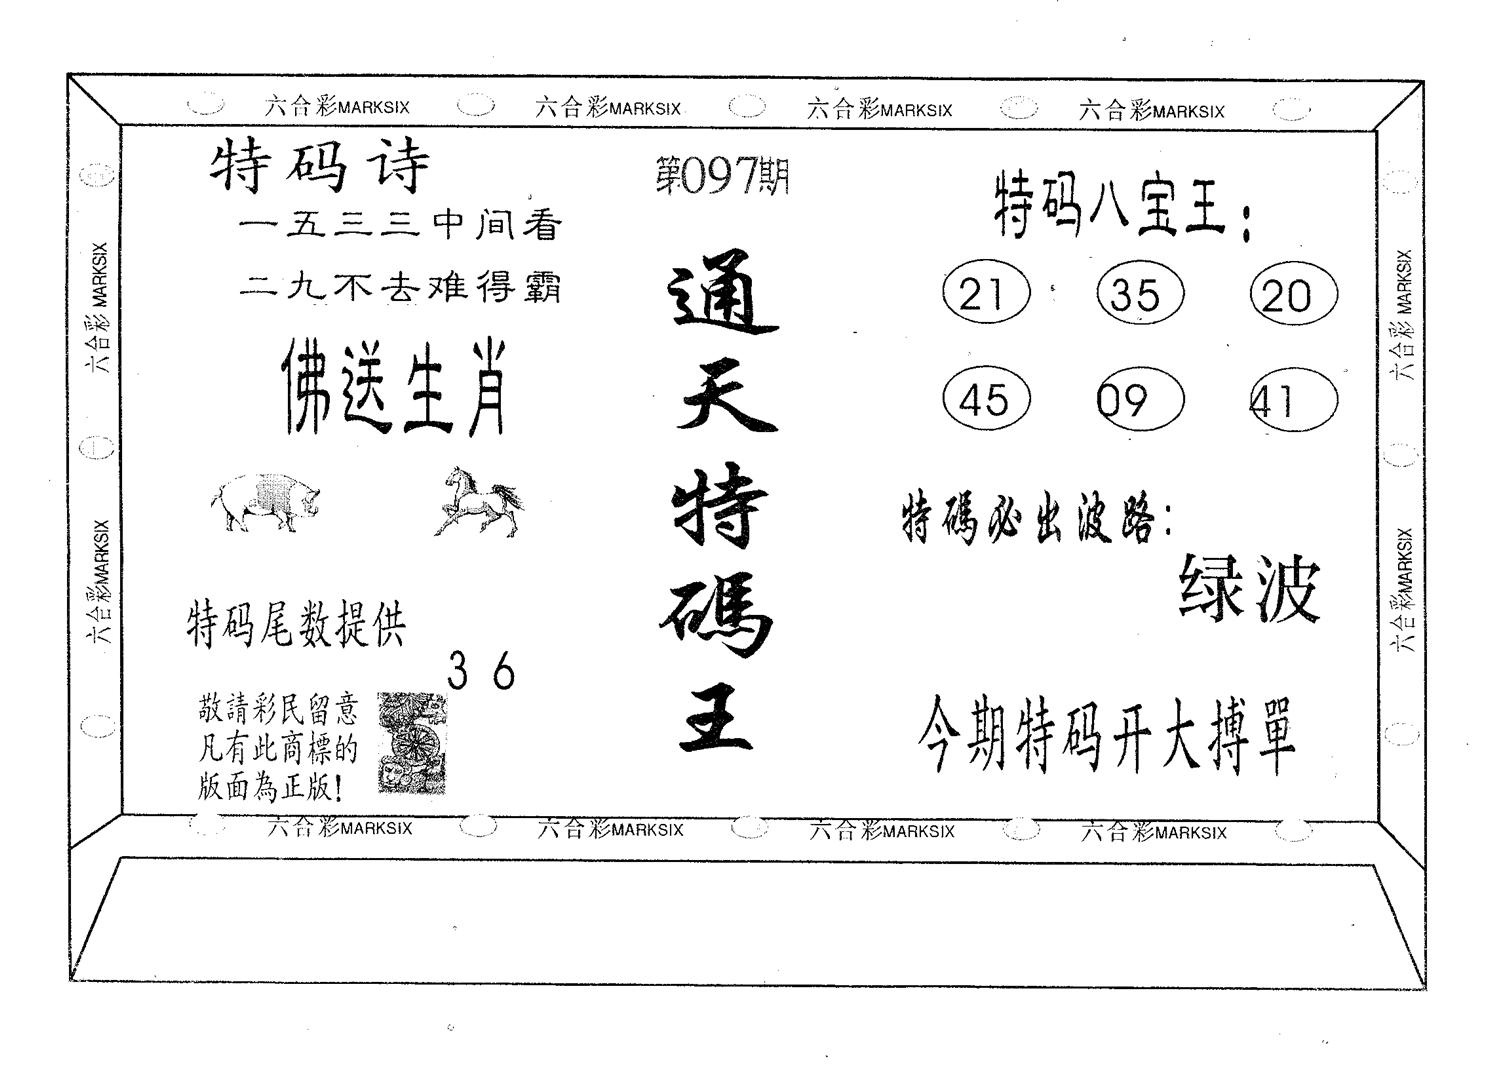 六合彩MARKSIX 六合彩MARKSIX 六合彩MARKSIX 六合彩MARKSIX
特码诗
一五三三中间看
二九不去难得霸
佛送生肖
特码尾数提供
3 6
敬請彩民留意
凡有此商標的
版面為正版!
第097期
通天特碼王
特码八宝王:
21 35 20
45 09 41
特碼必出波路:
绿波
今期特码开大搏單
六合彩 MARKSIX
六合彩MARKSIX
六合彩 MARKSIX
六合彩MARKSIX
六合彩MARKSIX 六合彩MARKSIX 六合彩MARKSIX 六合彩MARKSIX